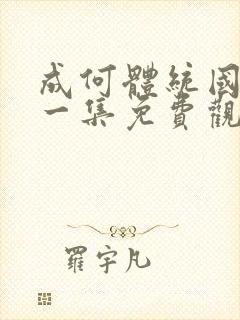 成何體統國
一集免費觀
羅宇凡